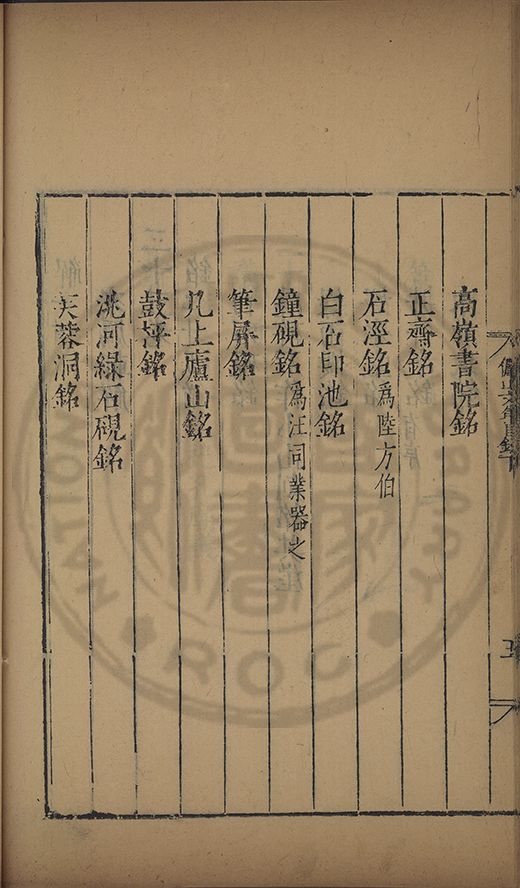 高嶺書院銘
正齋銘
石涇銘為陸方伯
白石印池銘
鐘硯銘為汪司業器之
筆屏銘
几上廬山銘
鼓枰銘
洮河綠石硯銘
芙蓉洞銘
ROC